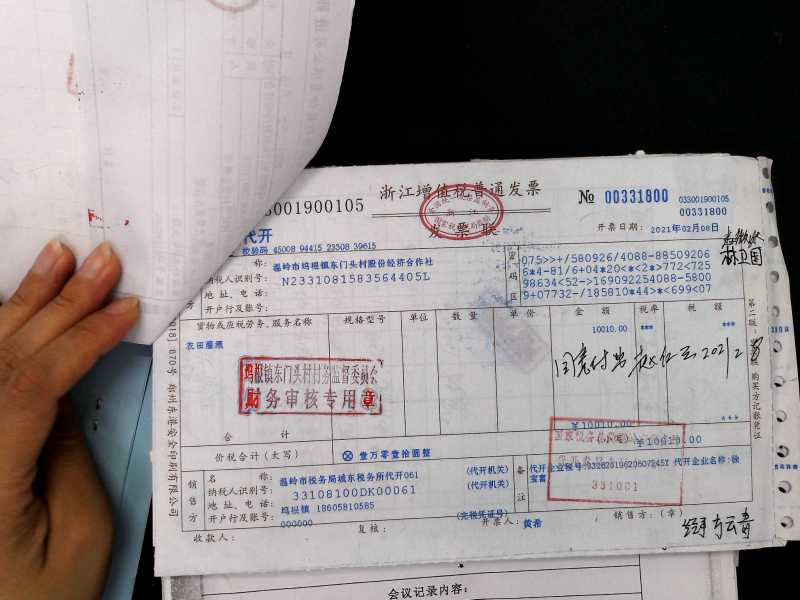 浙江增值税普通发票
3001900105
№ 00331800
033001900105
00331800
代开
发票联
开票日期: 2021年02月08日
校验码 45008 94415 23308 39615
名 称: 温岭市坞根镇东门头村股份经济合作社
纳税人识别号: N2331081583564405L
地 址、电 话:
开户行及账号:
密码区
075>>+/580926/4088-88509206
6*4-81/6+04*20<*<2*>772<725
98634<52->169092254088-5800
9+07732-/185810*44>*<699<07
林卫国
货物或应税劳务、服务名称 规格型号 单位 数量 单价 金额 税率 税额
10010.00 *** ***
坞根镇东门头村村务监督委员会
财务审核专用章
同意付 2021 2
合 计 ¥10010.00 ***
价税合计(大写) ⊗ 壹万零壹拾圆整 ¥10010.00
销售方
名 称: 温岭市税务局城东税务所代开061 (代开机关)
纳税人识别号: 33108100DK00061 (代开机关)
地 址、电 话: 坞根镇 18605810585
开户行及账号: 000000 (完税凭证号)
备注
代开企业税号: 代开企业名称:徐
宝富
331081
收款人: 复核: 开票人: 黄希 销售方:(章)
第二联 购买方记账凭证
670号 郑州东港安全印刷有限公司
会议记录内容: